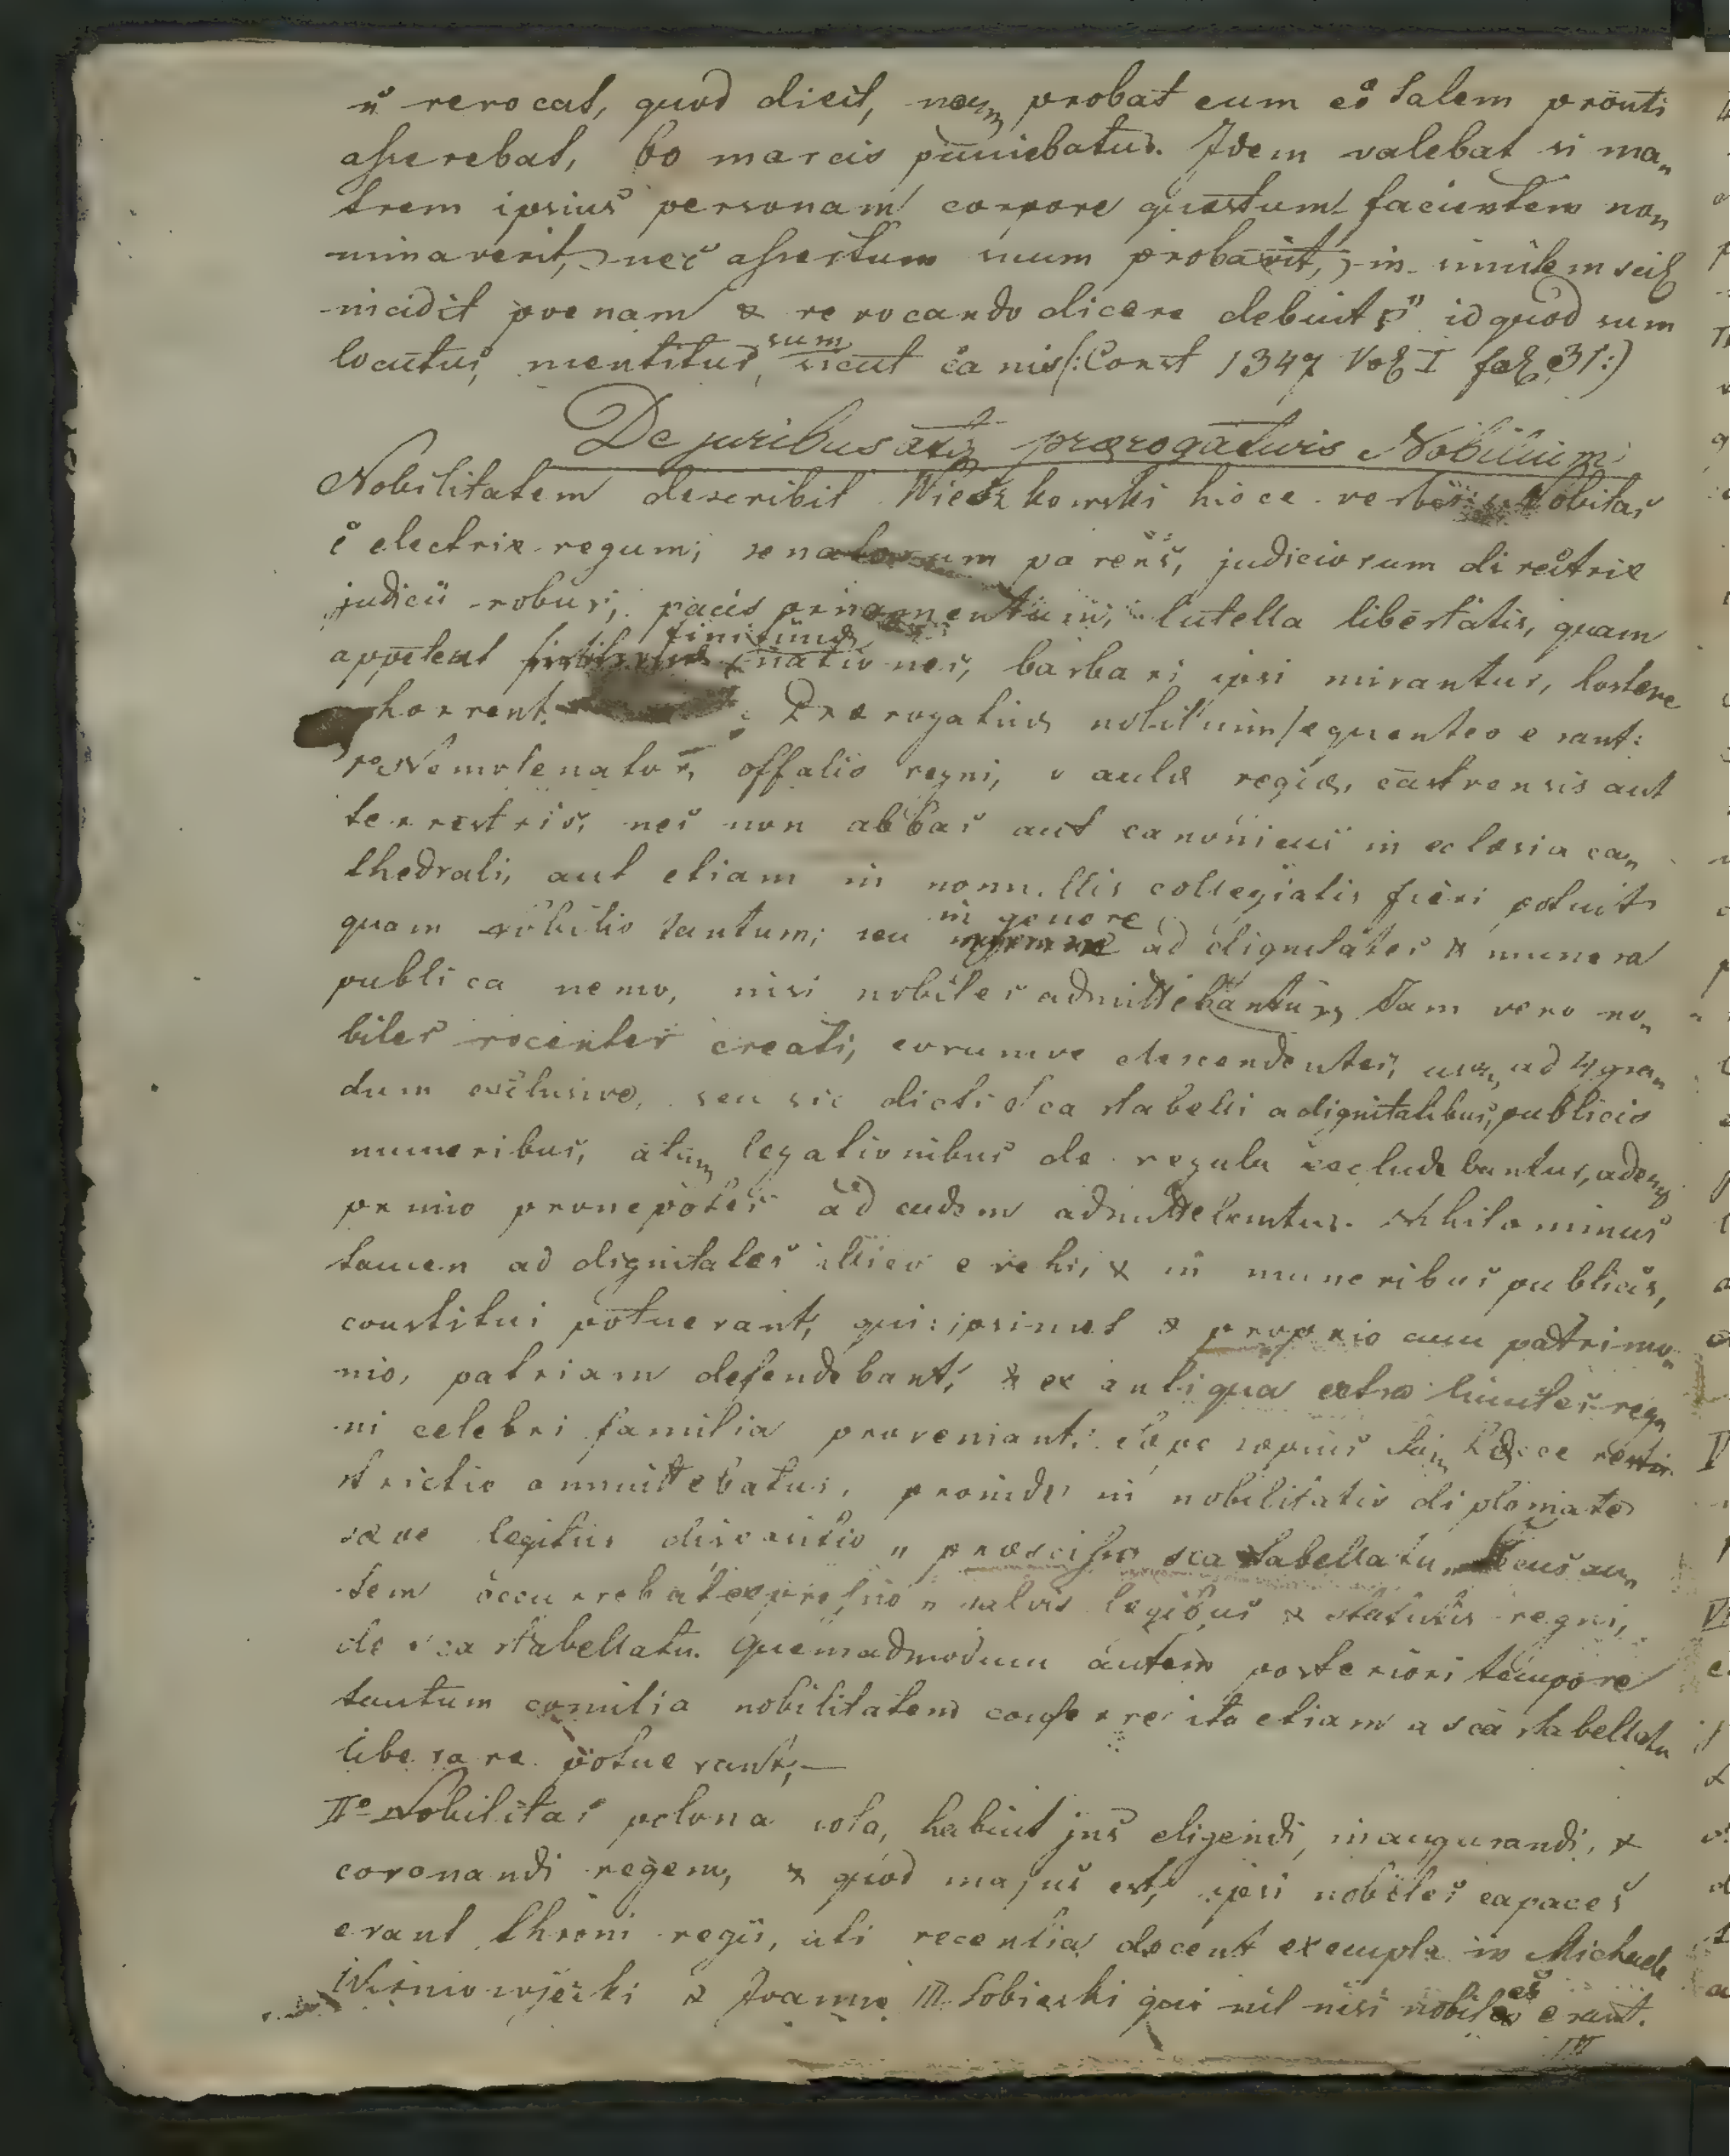 n̄ revocat, quod dicit, neq̃ probat eum eē talem prouti
asserebat, 60 marcis puniebatur. Idem valebat si ma„
trem ipsius personam corpore quæstum facientem no„
minaverit, nec assertum suum probavit, in similem scil
incidit poenam & revocando dicere debuit „ id quod sum
locutus, mentitus sum sicut canis (: Const 1347 Vol I fol 31:)
De juribus atq̃ prærogativis Nobilium
Nobilitatem describit hisce verbis: Nobilitas
ē electrix regum; senatorum parens, judiciorum directrix
judicii robur, pacis tutella libertatis, quam
appetent finitimæ nationes, barbari ipsi mirantur, hostes
horrent. Prærogativæ nobilium sequentes erant:
1º Nemo senator, offalis regni, v aulæ regiæ, castrensis aut
terrestris, nec non abbas aut canonicus in eclesia ca„
thedrali, aut etiam in nonnullis collegiatis fieri potuit
quam nobilis tantum; seu in genere ad dignitates & munera
publica nemo, nisi nobiles admittebantur, Jam vero no„
biles recenter creati, eorumve descendentes, usq̃ ad 4 gra„
dum exclusive, seu sic dicti scartabelli a dignitatibus, publicis
muneribus, atq̃ legationibus de regula excludebantur, adeoq̃
primo pronepotes ad eadem admittebantur. Nihilominus
tamen ad dignitates illico evehi, & in muneribus publicis,
constitui potuerant, qui ipsimet & proprio cum patrimo„
nio, patriam defendebant, & ex antiqua extra limites reg„
ni celebri familia proveniant. sæpe sæpius tam̃ hæcce restri„
strictio ommittebatur, proinde in nobilitatis diplomate
sæpe legitur dispositio „ præscisso scartabellatu „ secus au„
tem occurrebat expressio „ salvis legibus & statutis regni,
de scartabellatu. Quemadmodum autem posteriori tempore
tantum comitia nobilitatem conferre ita etiam a scartabellatu
liberare potuerant, —
IIº Nobilitas polona sola, habuit jus eligendi, inaugurandi, &
coronandi regem, & quod majus est, ipsi nobiles capaces
erant throni regii, uti recentia docent exempla in Michaele
Wisniowjecki & Joanne III Sobieski qui nil nisi nobiles erant.
III